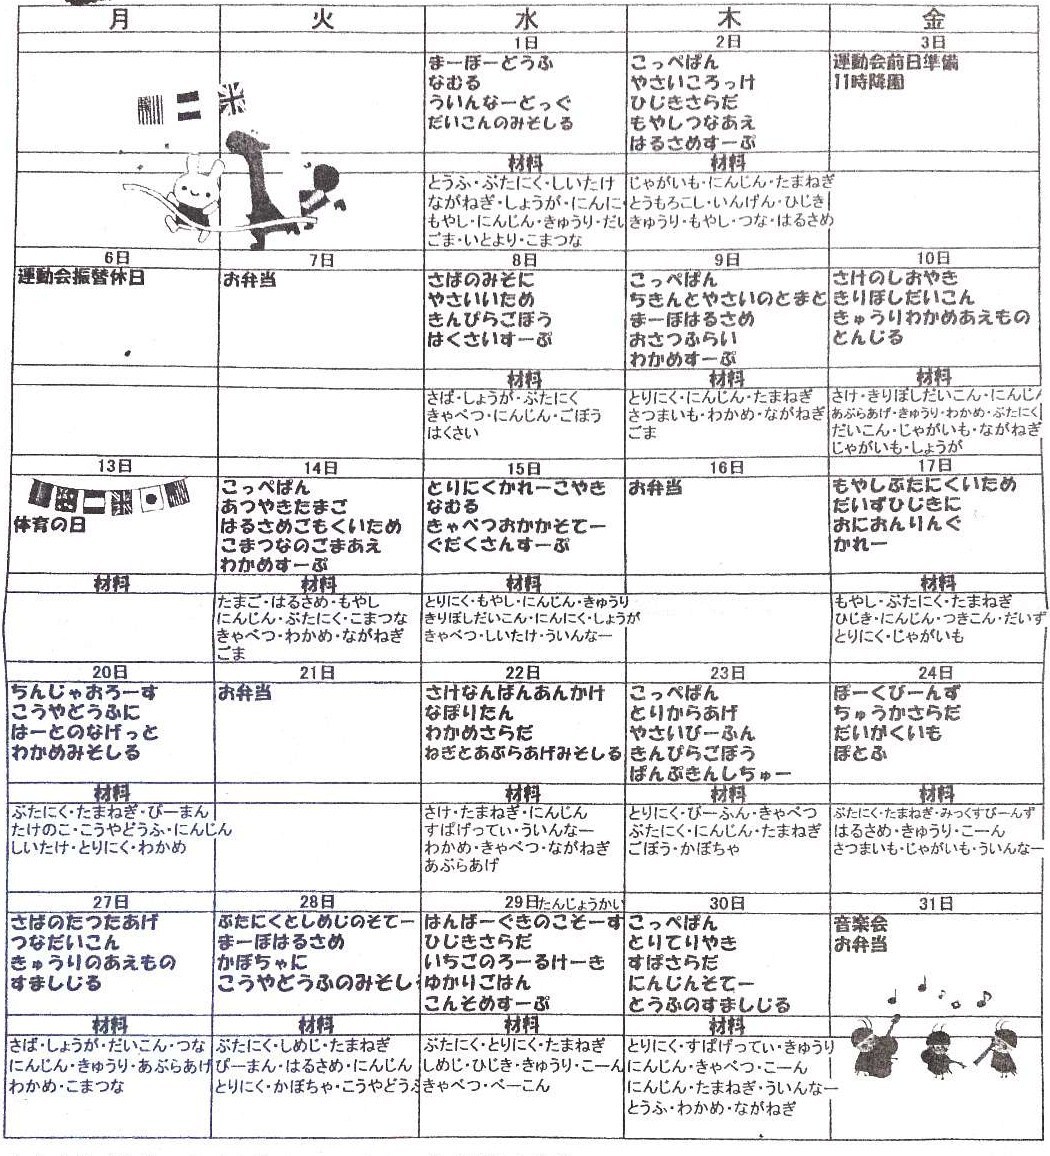 月 火 水 木 金
1日 2日 3日
まーぼーどうふ
なむる
ういんなーどっぐ
だいこんのみそしる
こっぺぱん
やさいころっけ
ひじきさらだ
もやしつなあえ
はるさめすーぷ
運動会前日準備
11時降園
材料 材料
とうふ・ぶたにく・しいたけ
ながねぎ・しょうが・にんに
もやし・にんじん・きゅうり・だい
ごま・いとより・こまつな
じゃがいも・にんじん・たまねぎ
とうもろこし・いんげん・ひじき
きゅうり・もやし・つな・はるさめ
6日 7日 8日 9日 10日
運動会振替休日
お弁当
さばのみそに
やさいいため
きんぴらごぼう
はくさいすーぷ
こっぺぱん
ちきんとやさいのとまと
まーぼはるさめ
おさつふらい
わかめすーぷ
さけのしおやき
きりぼしだいこん
きゅうりわかめあえもの
とんじる
材料 材料 材料
さば・しょうが・ぶたにく
きゃべつ・にんじん・ごぼう
はくさい
とりにく・にんじん・たまねぎ
さつまいも・わかめ・ながねぎ
ごま
さけ・きりぼしだいこん・にんじん
あぶらあげ・きゅうり・わかめ・ぶたにく
だいこん・じゃがいも・ながねぎ
じゃがいも・しょうが
13日 14日 15日 16日 17日
体育の日
こっぺぱん
あつやきたまご
はるさめごもくいため
こまつなのごまあえ
わかめすーぷ
とりにくかれーこやき
なむる
きゃべつおかかそてー
ぐだくさんすーぷ
お弁当
もやしぶたにくいため
だいずひじきに
おにおんりんぐ
かれー
材料 材料 材料 材料
たまご・はるさめ・もやし
にんじん・ぶたにく・こまつな
きゃべつ・わかめ・ながねぎ
ごま
とりにく・もやし・にんじん・きゅうり
きりぼしだいこん・にんにく・しょうが
きゃべつ・しいたけ・ういんなー
もやし・ぶたにく・たまねぎ
ひじき・にんじん・つきこん・だいず
とりにく・じゃがいも
20日 21日 22日 23日 24日
ちんじゃおろーす
こうやどうふに
はーとのなげっと
わかめみそしる
お弁当
さけなんばんあんかけ
なぽりたん
わかめさらだ
ねぎとあぶらあげみそしる
こっぺぱん
とりからあげ
やさいびーふん
きんぴらごぼう
ぱんぷきんしちゅー
ぽーくびーんず
ちゅうかさらだ
だいがくいも
ぽとふ
材料 材料 材料 材料
ぶたにく・たまねぎ・ぴーまん
たけのこ・こうやどうふ・にんじん
しいたけ・とりにく・わかめ
さけ・たまねぎ・にんじん
すぱげってぃ・ういんなー
わかめ・きゃべつ・ながねぎ
あぶらあげ
とりにく・びーふん・きゃべつ
ぶたにく・にんじん・たまねぎ
ごぼう・かぼちゃ
ぶたにく・たまねぎ・みっくすびーんず
はるさめ・きゅうり・こーん
さつまいも・じゃがいも・ういんなー
27日 28日 29日たんじょうかい 30日 31日
さばのたつたあげ
つなだいこん
きゅうりのあえもの
すましじる
ぶたにくとしめじのそてー
まーぼはるさめ
かぼちゃに
こうやどうふのみそし
はんばーぐきのこそーす
ひじきさらだ
いちごのろーるけーき
ゆかりごはん
こんそめすーぷ
こっぺぱん
とりてりやき
すぱさらだ
にんじんそてー
とうふのすましじる
音楽会
お弁当
材料 材料 材料 材料
さば・しょうが・だいこん・つな
にんじん・きゅうり・あぶらあげ
わかめ・こまつな
ぶたにく・しめじ・たまねぎ
ぴーまん・はるさめ・にんじん
とりにく・かぼちゃ・こうやどう
ぶたにく・とりにく・たまねぎ
しめじ・ひじき・きゅうり・こーん
きゃべつ・べーこん
とりにく・すぱげってぃ・きゅうり
にんじん・きゃべつ・こーん
にんじん・たまねぎ・ういんなー
とうふ・わかめ・ながねぎ